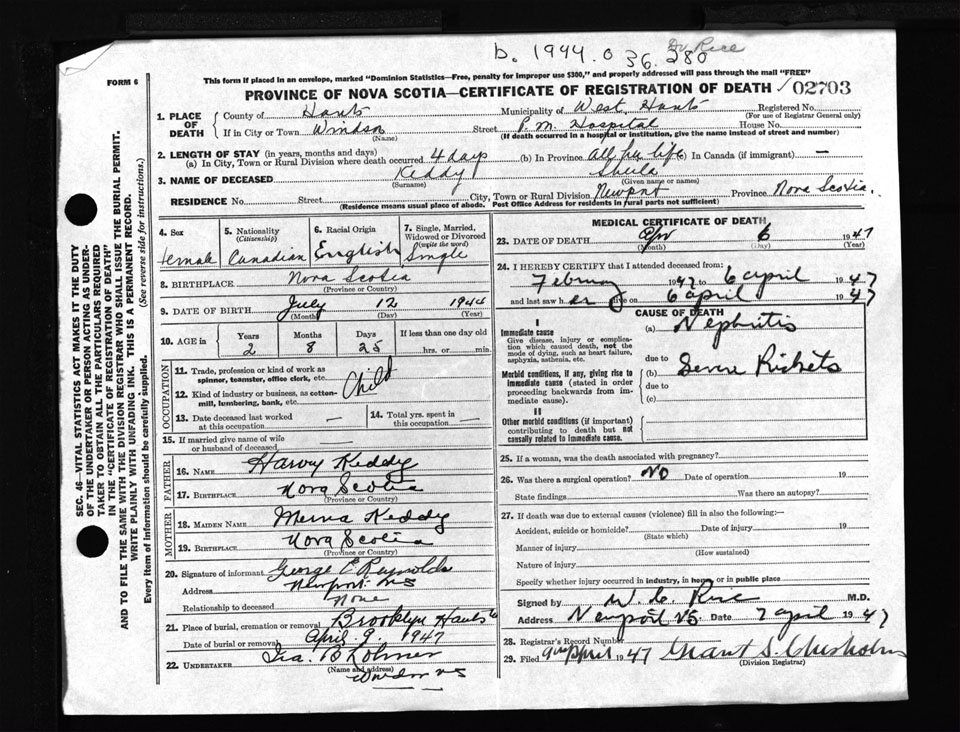 b. 1944. 036.280
Dr Rice
FORM 6
This form if placed in an envelope, marked "Dominion Statistics—Free, penalty for improper use $300," and properly addressed will pass through the mail "FREE"
PROVINCE OF NOVA SCOTIA—CERTIFICATE OF REGISTRATION OF DEATH 02703
SEC. 46—VITAL STATISTICS ACT MAKES IT THE DUTY
OF THE UNDERTAKER OR PERSON ACTING AS UNDER-
TAKER TO OBTAIN ALL THE PARTICULARS REQUIRED
IN THE "CERTIFICATE OF REGISTRATION OF DEATH"
AND TO FILE THE SAME WITH THE DIVISION REGISTRAR WHO SHALL ISSUE THE BURIAL PERMIT.
WRITE PLAINLY WITH UNFADING INK. THIS IS A PERMANENT RECORD.
Every item of information should be carefully supplied. (See reverse side for instructions.)
1. PLACE OF DEATH
County of Hants Municipality of West Hants Registered No.
(For use of Registrar General only)
If in City or Town Windsor Street P. M. Hospital House No.
(Name) (If death occurred in a hospital or institution, give the name instead of street and number)
2. LENGTH OF STAY (in years, months and days)
(a) In City, Town or Rural Division where death occurred 4 days (b) In Province All her life (c) In Canada (if immigrant) —
3. NAME OF DECEASED Keddy Sheila
(Surname) (Given name or names)
RESIDENCE No. Street City, Town or Rural Division Newport Province Nova Scotia.
(Residence means usual place of abode. Post Office Address for residents in rural parts not sufficient)
4. Sex Female
5. Nationality (Citizenship) Canadian
6. Racial Origin English
7. Single, Married, Widowed or Divorced (write the word) Single
8. BIRTHPLACE Nova Scotia
(Province or Country)
9. DATE OF BIRTH July 12 1944
(Month) (Day) (Year)
10. AGE in Years Months Days If less than one day old
2 8 25 hrs. or min.
OCCUPATION
11. Trade, profession or kind of work as spinner, teamster, office clerk, etc. Child
12. Kind of industry or business, as cotton-mill, lumbering, bank, etc.
13. Date deceased last worked at this occupation —
14. Total yrs. spent in this occupation —
15. If married give name of wife or husband of deceased
FATHER
16. NAME Harvy Keddy
17. BIRTHPLACE Nova Scotia
(Province or Country)
MOTHER
18. MAIDEN NAME Merna Keddy
19. BIRTHPLACE Nova Scotia
(Province or Country)
20. Signature of informant George E Reynolds
Address Newport NS
Relationship to deceased None
21. Place of burial, cremation or removal Brooklyn Hants Co
Date of burial or removal April 9. 1947
22. UNDERTAKER Ira. B Lohnes
(Name and address)
Windsor NS
MEDICAL CERTIFICATE OF DEATH
23. DATE OF DEATH Apr 6 1947
(Month) (Day) (Year)
24. I HEREBY CERTIFY that I attended deceased from:
February 1947 to 6 april 1947
and last saw her alive on 6 april 1947
CAUSE OF DEATH
I
Immediate cause
Give disease, injury or complication which caused death, not the mode of dying, such as heart failure, asphyxia, asthenia, etc.
(a) Nephritis
due to
Morbid conditions, if any, giving rise to Immediate cause (stated in order proceeding backwards from immediate cause).
(b) Severe Rickets
due to
(c)
II
Other morbid conditions (if important) contributing to death but not causally related to immediate cause.
25. If a woman, was the death associated with pregnancy?
26. Was there a surgical operation? No Date of operation 19
State findings Was there an autopsy?
27. If death was due to external causes (violence) fill in also the following:—
Accident, suicide or homicide? Date of injury 19
(State which)
Manner of injury
(How sustained)
Nature of injury
Specify whether injury occurred in industry, in home, or in public place
Signed by W. C. Rice M.D.
Address Newport NS Date 7 april 1947
28. Registrar's Record Number
29. Filed 9th April 1947 Grant S. Chisholm
(Division Registrar)